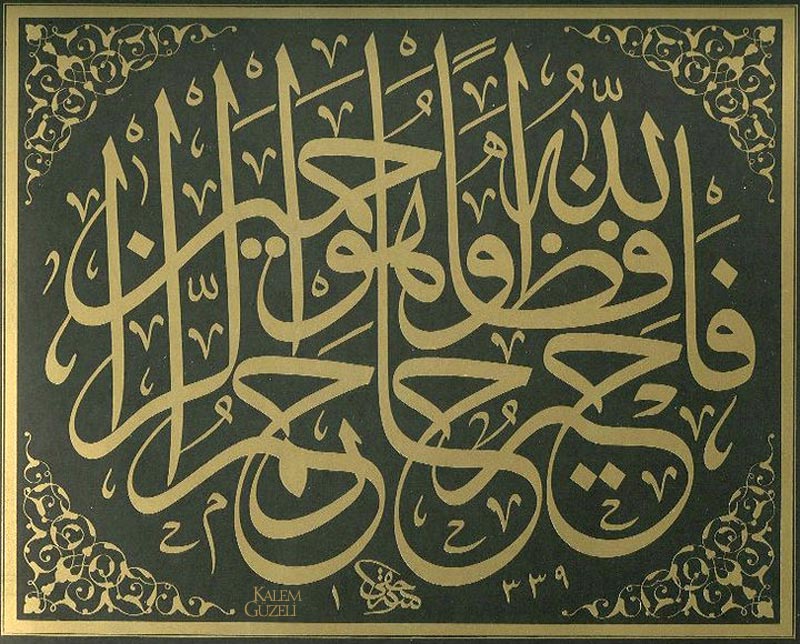 فالله خير حافظا وهو ارحم الراحمين
١٣٣٩
KALEM
GUZELİ